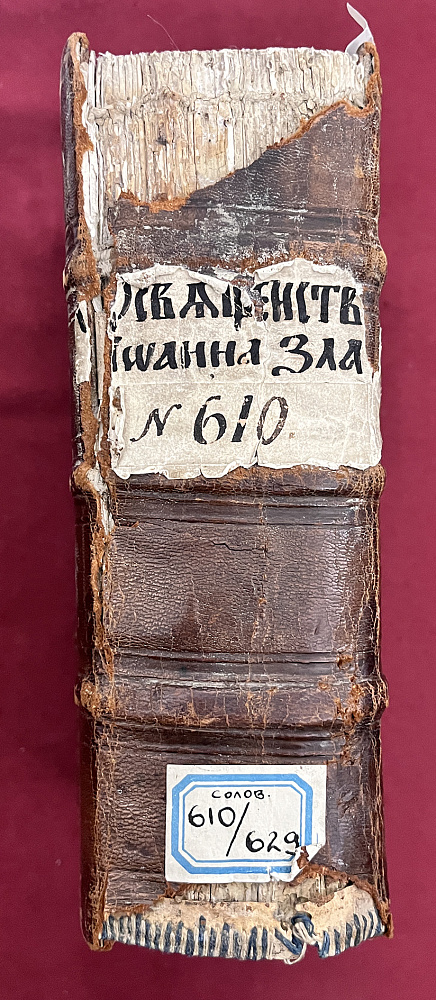 ОСВѦЩЕНСТВ
іѡанна Зла
N 610.
СОЛОВ.
610/
629